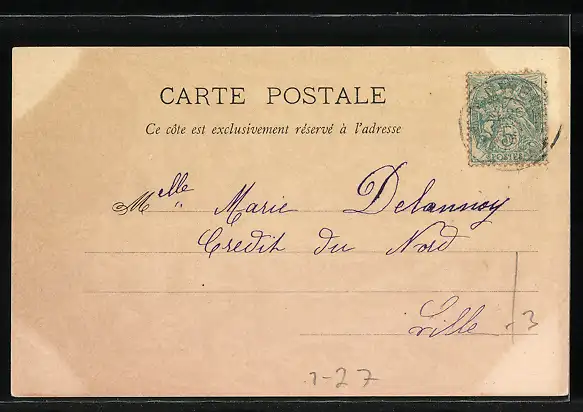 CARTE POSTALE
Ce côte est exclusivement réservé à l'adresse
5
POSTES
Melle Marie Delannoy
Credit du Nord
Lille
- 3
1-27